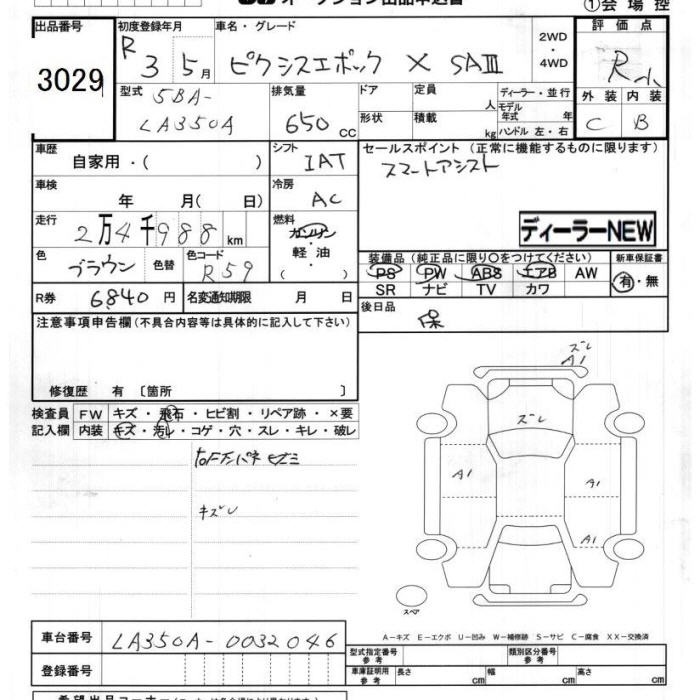 オークション出品申込書
①会場控
出品番号 初度登録年月 車名・グレード 評価点
3029
R 3 5月 ピクシスエポック X SAⅢ 2WD・4WD R
型式 5BA-LA350A 排気量 650cc ドア 定員 人 ディーラー・並行
形状 積載 kg モデル年式 年 ハンドル 左・右
外装 内装
C B
車歴 自家用・( ) シフト IAT セールスポイント(正常に機能するものに限ります)
スマートアシスト
車検 年 月( 日) 冷房 AC
走行 2万4千988km 燃料 ガソリン・軽油・( )
ディーラーNEW
色 ブラウン 色替 色コード R59
装備品(純正品に限り○をつけてください) 新車保証書
PS PW ABS エアB AW 有・無
SR ナビ TV カワ
R券 6840円 名変通知期限 月 日 後日品
保
注意事項申告欄(不具合内容等は具体的に記入して下さい)
修復歴 有〔箇所 〕
検査員記入欄 FW キズ・飛石・ヒビ割・リペア跡・×要
内装 キズ・汚レ・コゲ・穴・スレ・キレ・破レ
キズレ
ズレ
A1
ズレ
A1 A1
A1
スペア
A-キズ E-エクボ U-凹み W-補修跡 S-サビ C-腐食 XX-交換済
車台番号 LA350A-0032046
型式指定番号 参考 類別区分番号 参考
登録番号 車庫証明用 参考 長さ cm 幅 cm 高さ cm